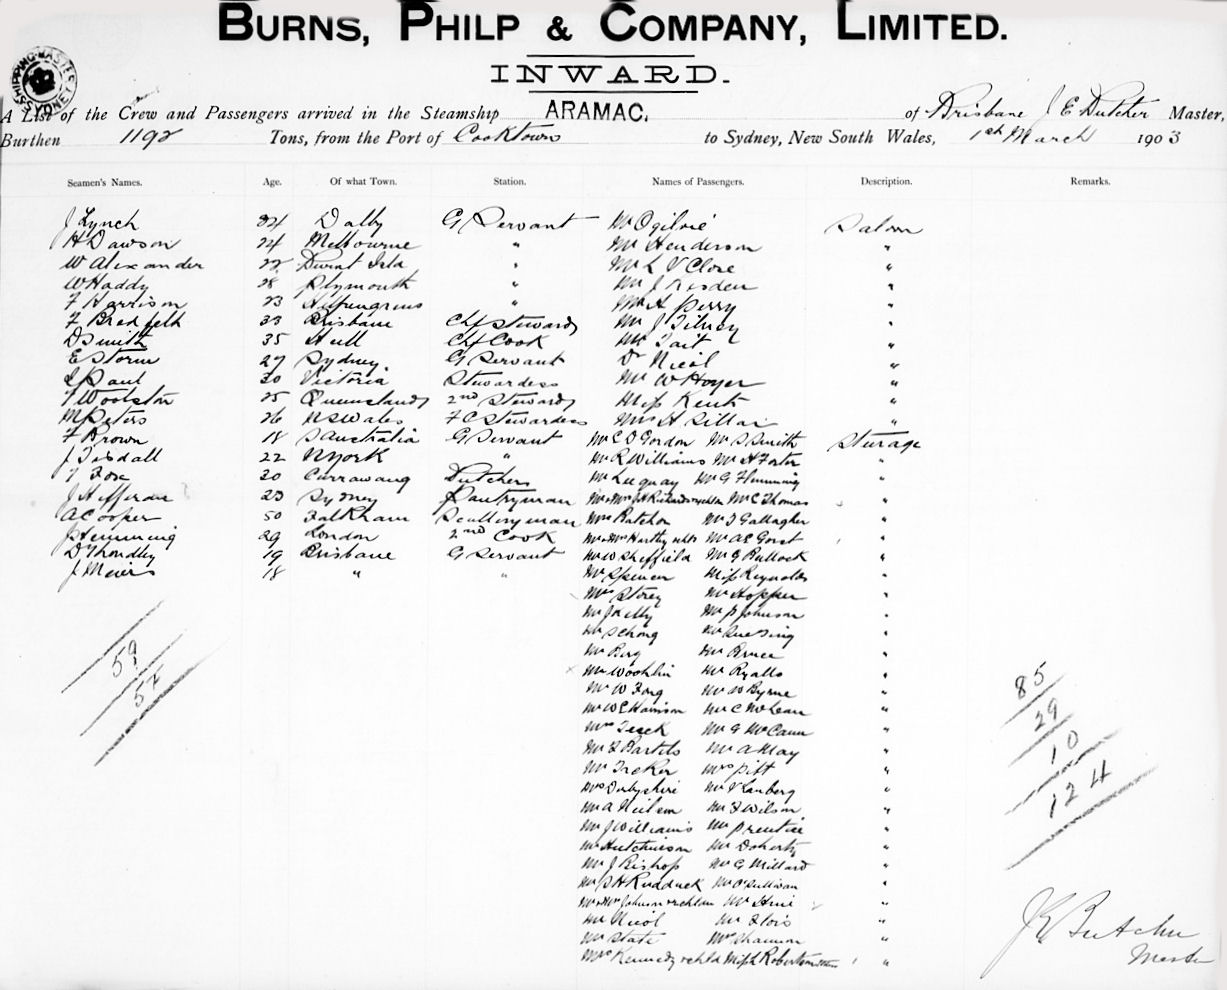 BURNS, PHILP & COMPANY, LIMITED.
INWARD.
SHIPPING MASTER SYDNEY
A List of the Crew and Passengers arrived in the Steamship ARAMAC. of Brisbane J E Butcher Master,
Burthen 1192 Tons, from the Port of Cooktown to Sydney, New South Wales, 1st March 1903
Seamen's Names. Age. Of what Town. Station. Names of Passengers. Description. Remarks.
J Lynch 34 Dalby G Servant Mr Ogilvie Saloon
H Dawson 24 Melbourne " Mr Henderson "
W Alexander 22 " Mr L V Clore "
W Haddy 28 Plymouth " Mr J "
F Harrison 23 " Mr A Perry "
F 33 Brisbane Chf Steward Mr J Tilney "
D Smith 35 Hull Chf Cook Mr Tait "
E Storm 27 Sydney G Servant Dr Nicol "
Paul 30 Victoria Stewardess Mr W Hoyer "
Woolston 25 Queensland 2nd Steward Miss Kent "
M Peters 26 N S Wales F C Stewardess Mrs H Sillar "
F Brown 18 S Australia G Servant Mr C D Gordon Mr S Smith Steerage
J Tisdall 22 N York " Mr R Williams Mr H Foster "
Fox 30 Currawang Butchers Mr Lee quay Mr G Flemming "
J Heffernan 23 Sydney Pantryman Mr & Mrs J H Richardson & chldn Mr C Thomas "
A Cooper 50 Falkham Sculleryman Mrs Mr J Gallagher "
J Hemming 29 London 2nd Cook Mr & Mrs Mr A E "
D 19 Brisbane G Servant Mr W Sheffield Mr G Bullock "
J Meiers 18 " " Mr Spencer Miss Reynolds "
Mrs Storey Mr Hopper "
Mr J Kelly Mr P Johnson "
Mr See Sing "
Mr Berg Mr Bruce "
59 Mr Mr Ryalls "
57 Mr W Fong Mr W Byrne "
85 Mr W E Harrison Mr C McLean "
29 Mr G McCann "
10 Mr F Bartels Mr A May "
124 Mr Mrs Pitt "
Mrs Derbyshire Mr "
Mr A Neilsen Mr F Wilson "
Mr J Williams Mr Prentice "
Mr Hutchinson Mr Doherty "
Mr J Bishop Mr G Millard "
Mr S H Rudduck Mr O'Sullivan "
Mr & Mrs Johnson & chldn Mr "
Mr Nicol Mr "
Mr State Mr Shannon "
Mrs Kennedy & chld Miss Robertson "
J E Butcher
Master